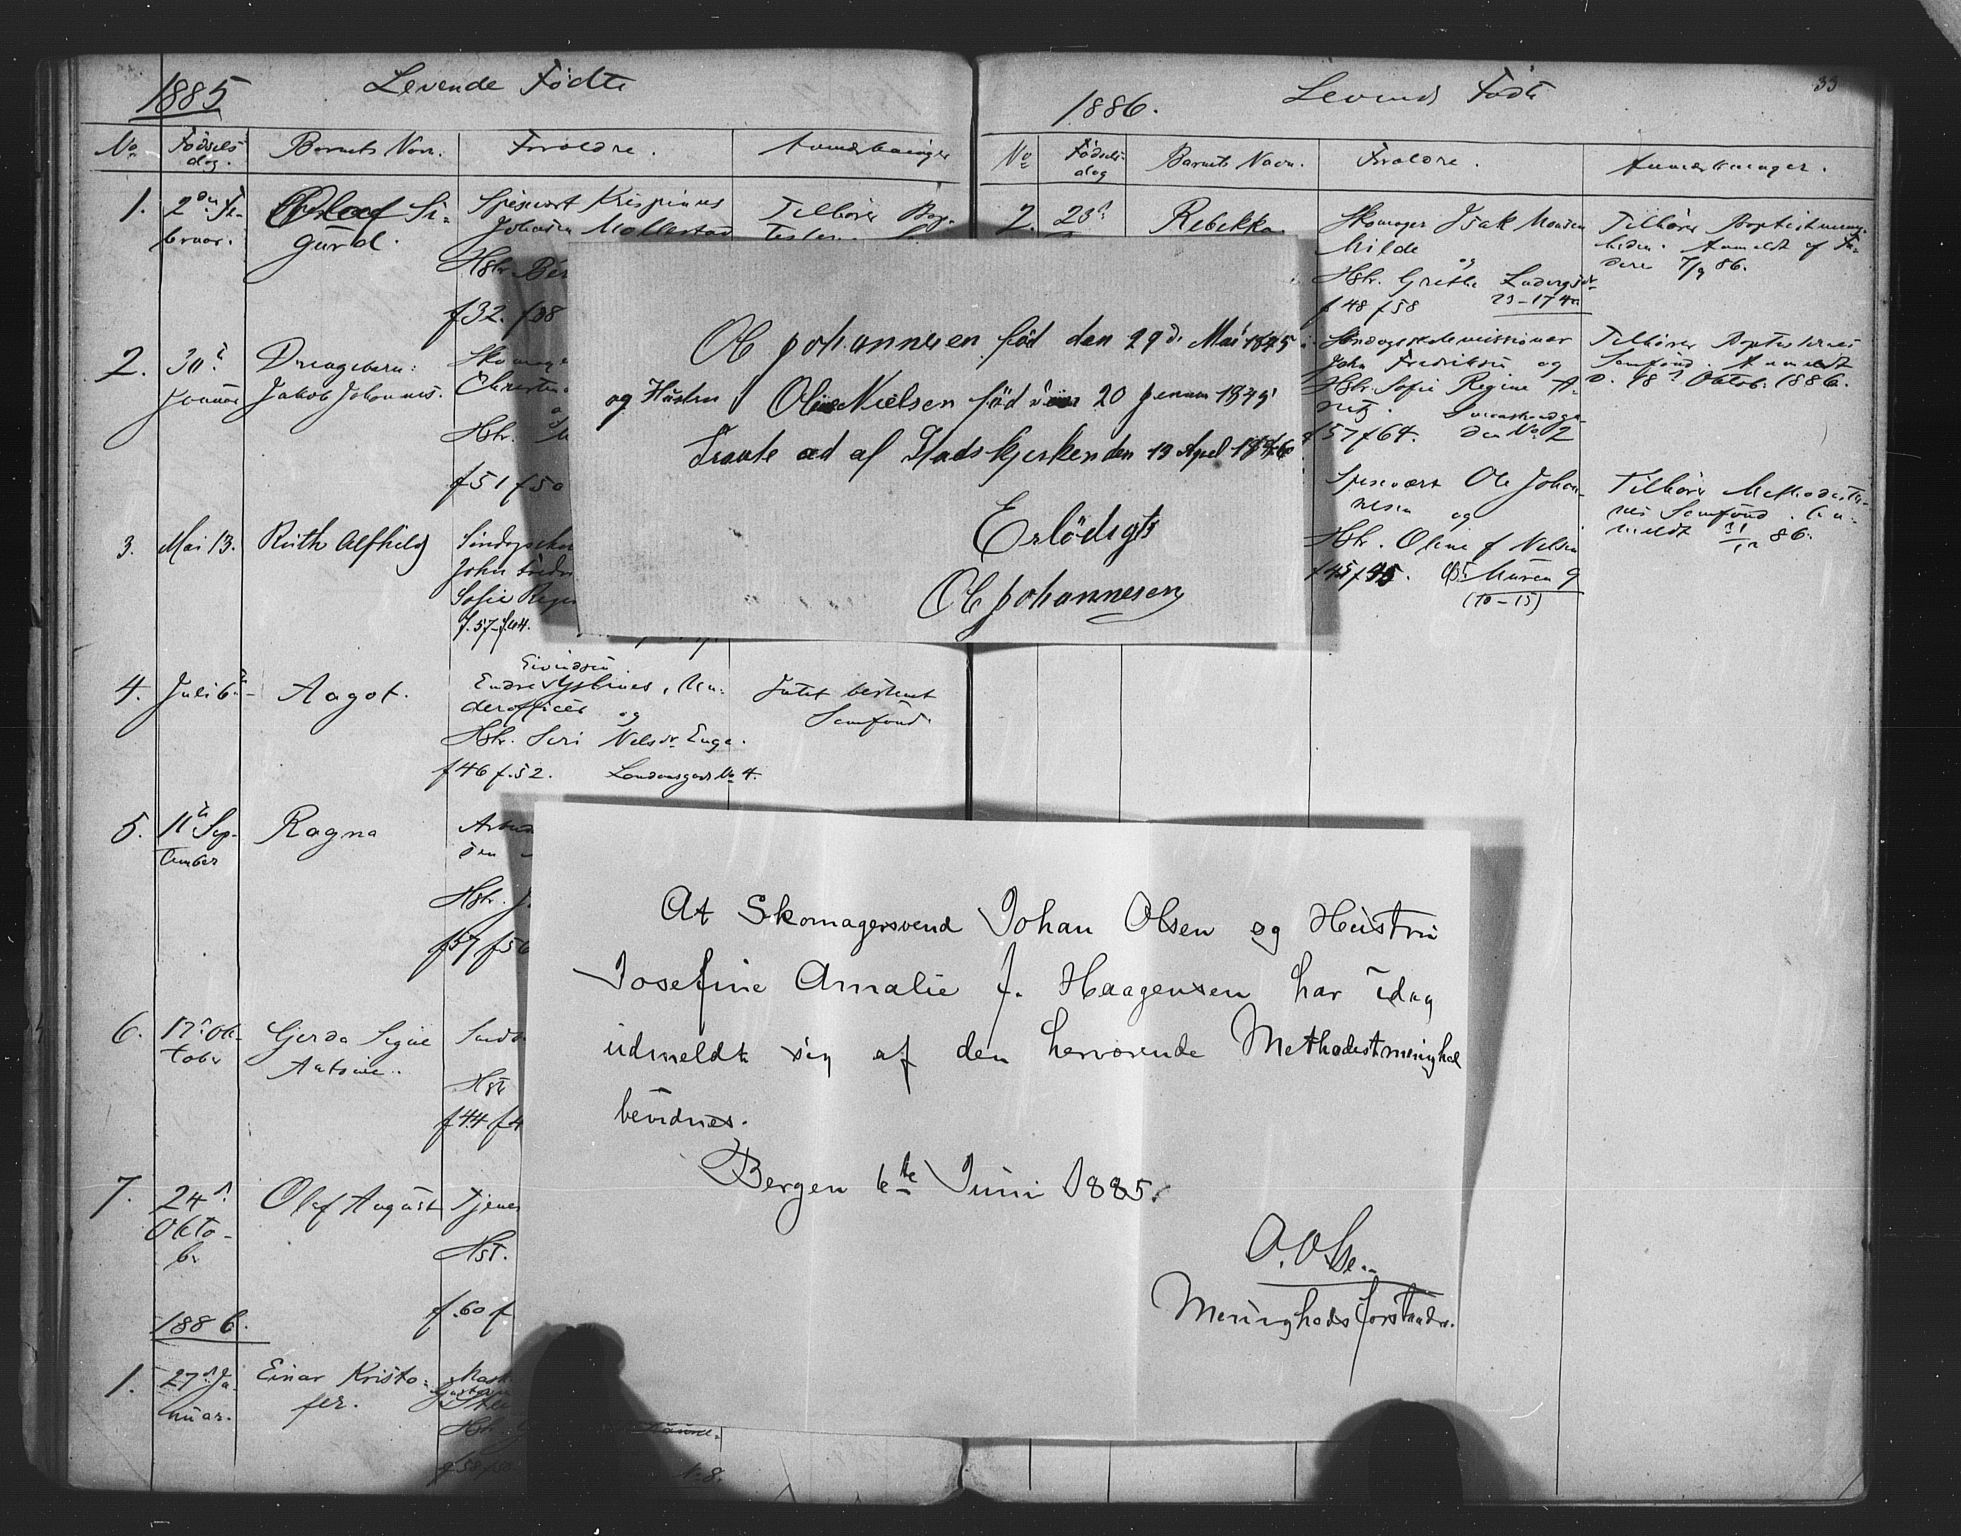 1885
Levende Fødte
No
Fødsels
dag.
Barnets Navn.
Forældre.
Anmærkninger
1.
2den Fe-
bruar.
Olaf Si-
gurd.
Spisevært Krispinus
Johansen Mollestad
Hstr.
f32. f38
Tilhører Bap-
2.
30te
Januar
Drengebarn:
Jakob Johannes.
Skomag
Christen
Hstr.
f51 f50
3.
Mai 13.
Ruth Alfhild
Søndagsskol
John Fredri
Sofie Regin
f.57-f.64.
4.
Juli 6te
Aagot.
Eivindsen
Endre Ystenes, Un-
derofficer og
Hstr. Siri Nelsdr. Enge.
f46 f.52.
Intet bestemt
Samfund.
5.
11te Sep-
tember
Ragna
Arbei
Hstr. J.
f57 f56
6.
17de Ok-
tober
Gjerda Signe
Antonie.
Hstr
f44 f4
7.
24de
Okto-
ber
Olaf August
Tjenes
Hst.
f.60 f
1886.
1.
27de Ja-
nuar.
Einar Kristo-
fer.
Mask
Hstr.
f58 f50
No 8.
33
1886.
Levende Fødte
No
Fødsels-
dag
Barnets Navn.
Forældre.
Anmærkninger.
2.
23de
Rebekka
Skomager Isak Monsen
Milde
og
Hstr. Grethe
f48 f58
23-17
Tilhører Baptistmenig-
heden. Anmeldt af Fa-
deren 7/9 86.
Søndagsskolemissionær
John Fredriksen og
Hstr. Sofie Regine
f57 f64.
No 2
Tilhører Baptisternes
Samfund. Anmeldt
d. 18de Oktob. 1886.
Spisevært Ole Johan-
nesen og
Hstr. Oline f Nelsen
f45 f45. Muren 9
(10-15)
Tilhører Methodister-
nes Samfund. An-
meldt 86.
Ole Johannesen født den 29de Mai 1845
og Hustru Oline Nielsen født den 20 Januar 1845
Traute ved af Stadskjerken den 13 April
Erbødigts
Ole Johannesen
At Skomagersvend Johan Olsen og Hustru
Josefine Amalie f. Haagensen har idag
udmeldt sig af den herværende Methodistmenighed
bevidnes.
Bergen 6te Juni 1885.
O. Olse
Menighedsforstander.